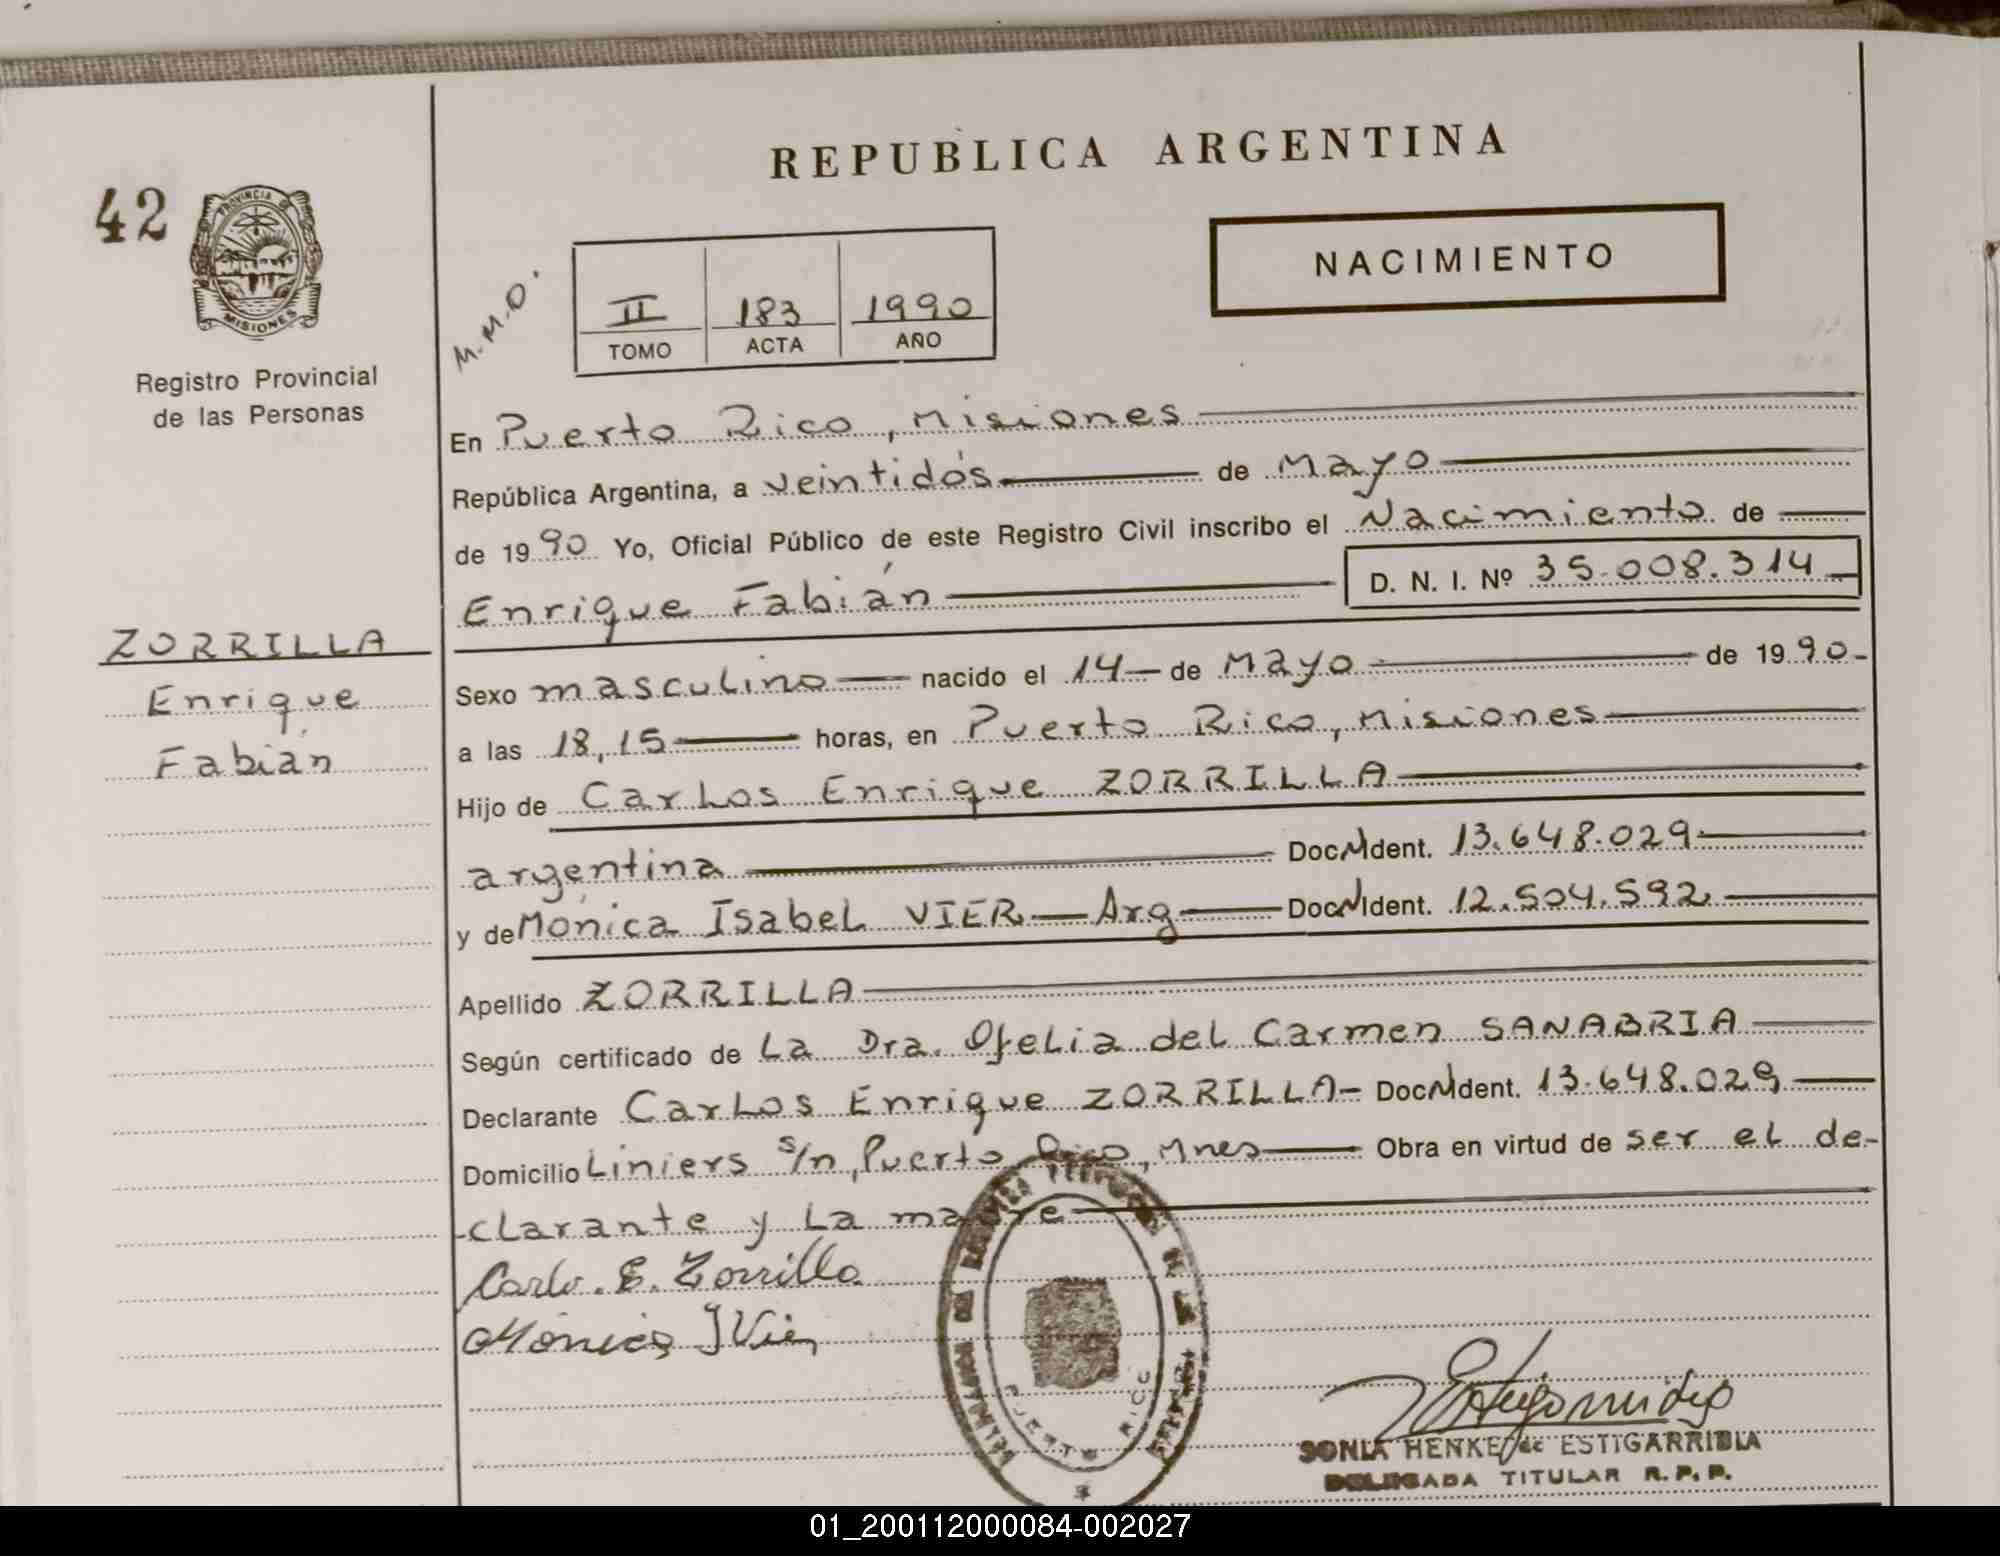 REPUBLICA ARGENTINA
42
PROVINCIA DE
MISIONES
Registro Provincial
de las Personas
M.M.O.
II 183 1990
TOMO ACTA AÑO
NACIMIENTO
En Puerto Rico, Misiones
República Argentina, a veintidós de Mayo
de 1990 Yo, Oficial Público de este Registro Civil inscribo el Nacimiento de
Enrique Fabián D. N. I. Nº 35.008.314
ZORRILLA
Enrique
Fabián
Sexo masculino nacido el 14 de Mayo de 1990
a las 18,15 horas, en Puerto Rico, Misiones
Hijo de Carlos Enrique ZORRILLA
argentina Doc. N. Ident. 13.648.029
y de Mónica Isabel VIER Arg Doc. N. Ident. 12.504.592
Apellido ZORRILLA
Según certificado de La Dra. Ofelia del Carmen SANABRIA
Declarante Carlos Enrique ZORRILLA Doc. N. Ident. 13.648.029
Domicilio Liniers s/n, Puerto Rico, Mnes Obra en virtud de ser el de-
clarante y La madre
Carlo. E. Zorrilla
Mónica I Vier
PUERTO RICO
SONIA HENKE de ESTIGARRIBIA
DELEGADA TITULAR R. P. P.
01_200112000084-002027